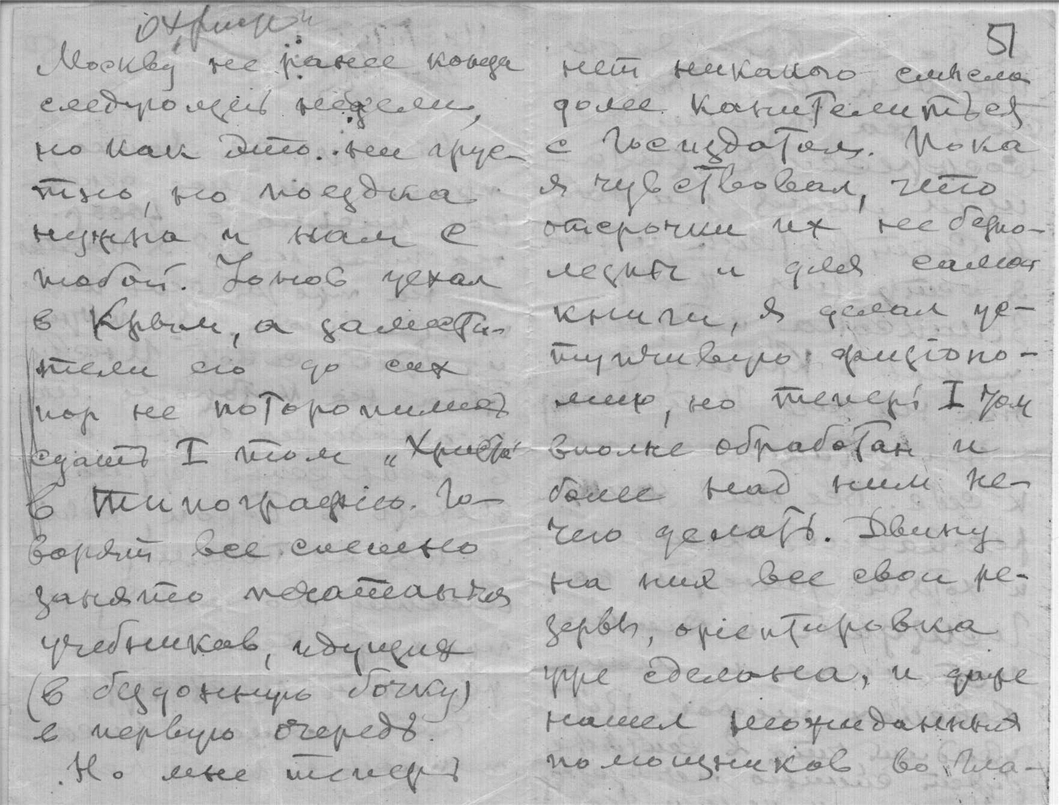 51
Москву не ранее конца
следующей недели,
но как это ни грус-
тно, но поездка
нужна и нам с
тобой. Ионов уехал
в Крым, а замести-
тели его до сих
пор не поторопились
сдать I том „Христа“
в типографию. Го-
ворят все спешно
занято печатанья
учебников, идущих
(в бездонную бочку)
в первую очередь.
Но мне теперь
нет никакого смысла
долее канителиться
с Госиздатом. Пока
я чувствовал, что
отсрочки их небезпо-
лезны и для самой
книги, я делал ус-
тупчивую физіоно-
мию, но теперь I том
вполне обработан и
более над ним не-
чего делать. Двину
на них все свои ре-
зервы, оріентировка
уже сделана, и даже
нашел неожиданных
помощников во гла-